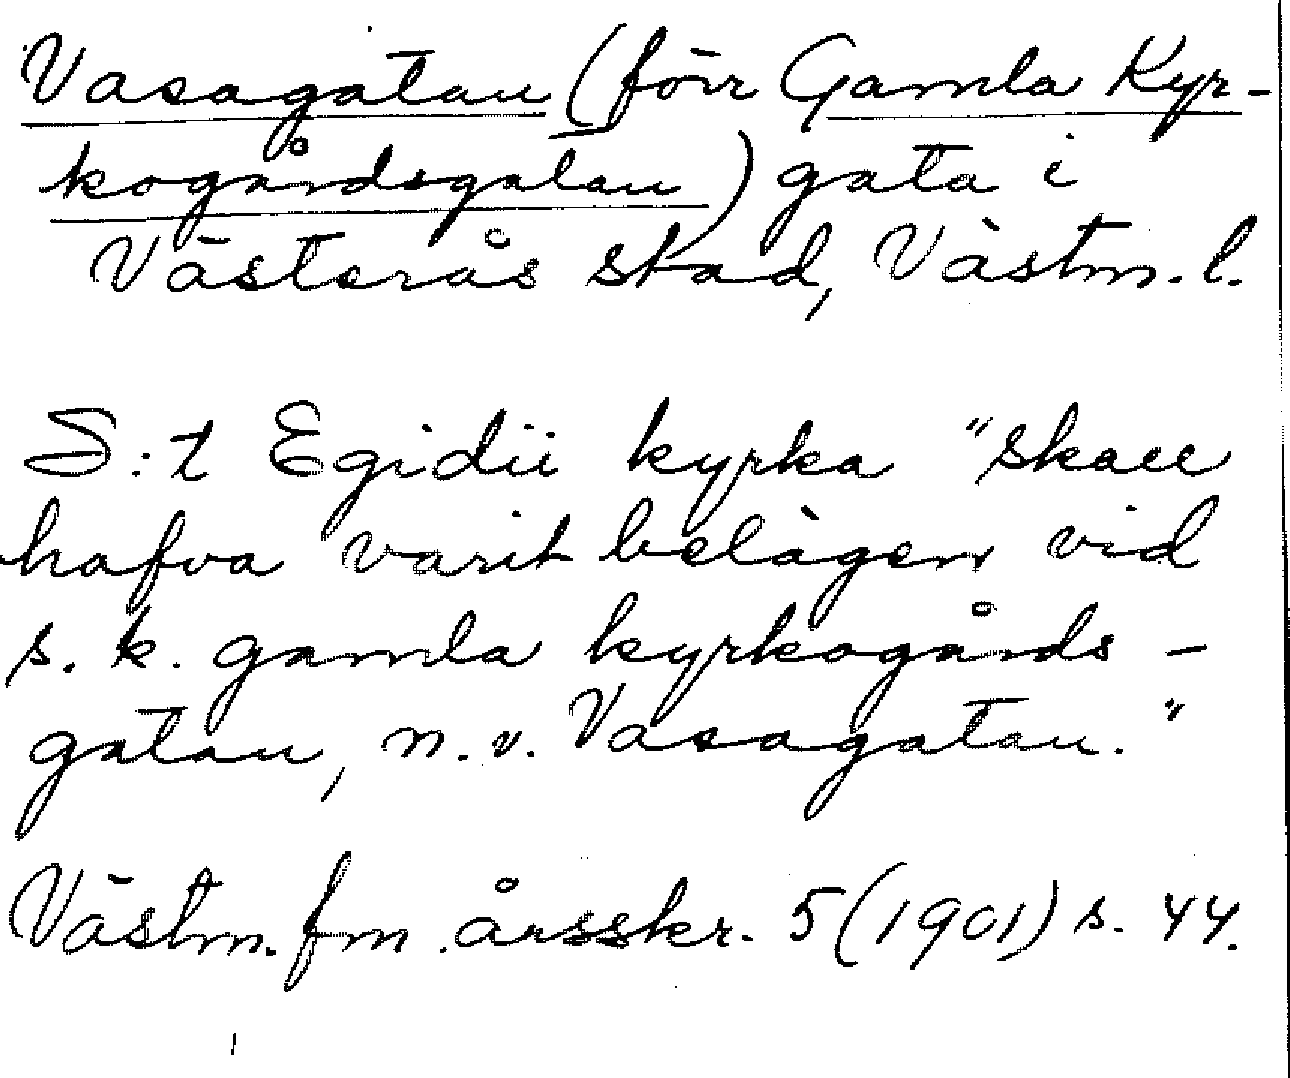 Vasagatan (förr Gamla Kyr-
kogårdsgatan) gata i
Västerås stad, Västm. l.
S:t Egidii kyrka "skall
hafva varit belägen vid
s. k. gamla kyrkogårds-
gatan, n. v. Vasagatan."
Västm. fm. årsskr. 5 (1901) s. 44.